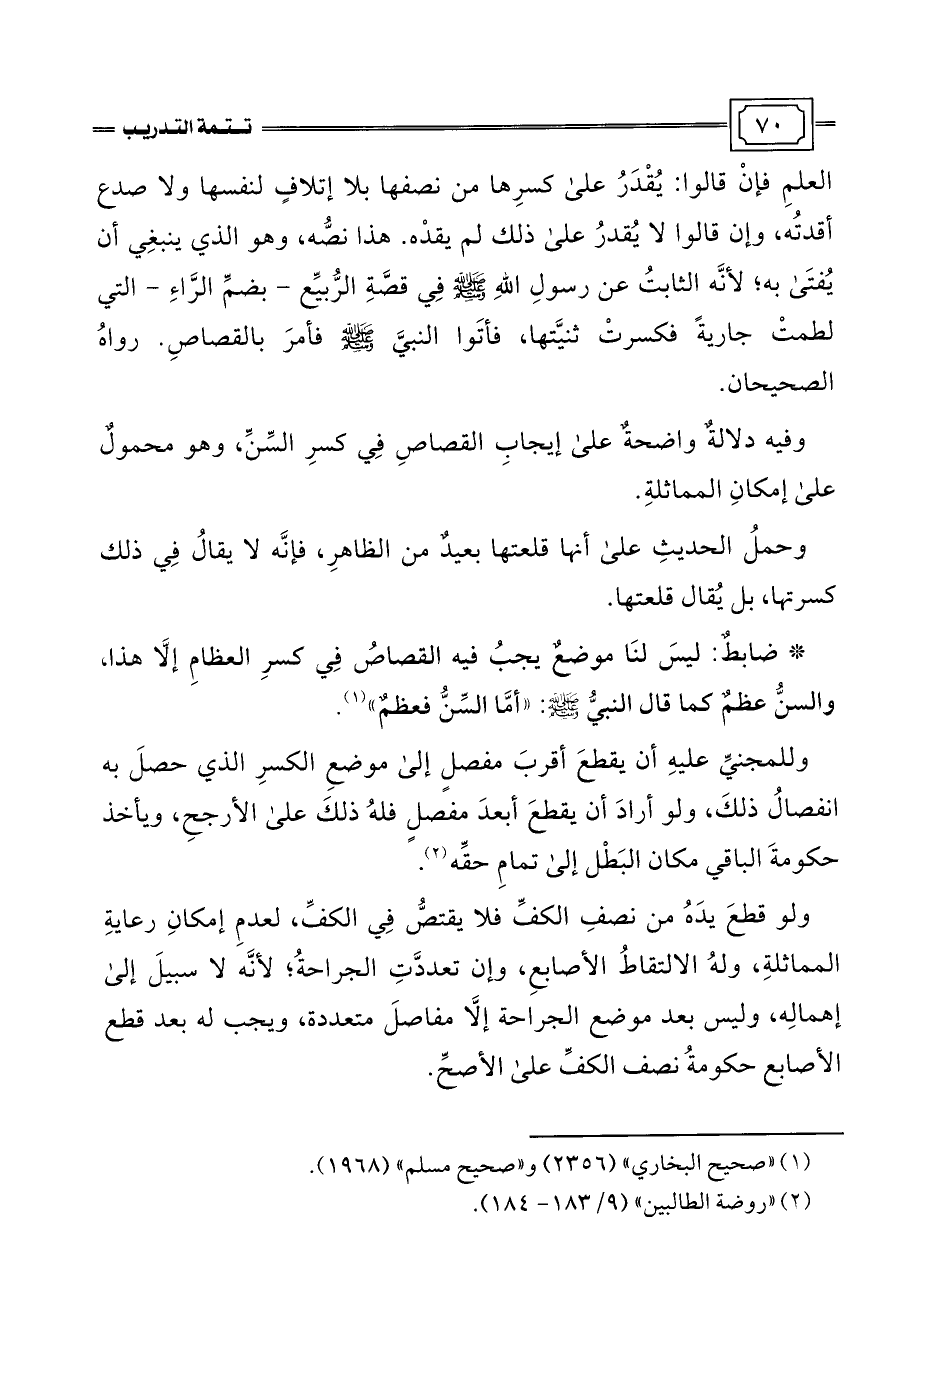 ٧٠
تـتـمة التـدريـب
العلمِ فإنْ قالوا: يُقْدَرُ علىٰ كسرِها من نصفها بلا إتلافٍ لنفسها ولا صدع
أقدتُه، وإن قالوا لا يُقدرُ علىٰ ذلك لم يقدْه. هذا نصُّه، وهو الذي ينبغِي أن
يُفتَىٰ به؛ لأنَّه الثابتُ عن رسولِ اللهِ ﷺ فِي قصَّةِ الرُّبيِّع - بضمِّ الرَّاءِ - التي
لطمتْ جاريةً فكسرتْ ثنيَّتها، فأتَوا النبيَّ ﷺ فأمرَ بالقصاصِ. رواهُ
الصحيحان.
وفيه دلالةٌ واضحةٌ علىٰ إيجابِ القصاصِ فِي كسرِ السِّنِّ، وهو محمولٌ
علىٰ إمكانِ المماثلةِ.
وحملُ الحديثِ علىٰ أنها قلعتها بعيدٌ من الظاهرِ، فإنَّه لا يقالُ فِي ذلك
كسرتها، بل يُقال قلعتها.
* ضابطٌ: ليسَ لنَا موضعٌ يجبُ فيه القصاصُ فِي كسرِ العظامِ إلَّا هذا،
والسنُّ عظمٌ كما قال النبيُّ ﷺ: «أمَّا السِّنُّ فعظمٌ»(١).
وللمجنيِّ عليهِ أن يقطعَ أقربَ مفصلٍ إلىٰ موضعِ الكسرِ الذي حصلَ به
انفصالُ ذلكَ، ولو أرادَ أن يقطعَ أبعدَ مفصلٍ فلهُ ذلكَ علىٰ الأرجحِ، ويأخذ
حكومةَ الباقي مكان البَطْل إلىٰ تمامِ حقِّه(٢).
ولو قطعَ يدَهُ من نصفِ الكفِّ فلا يقتصُّ فِي الكفِّ، لعدمِ إمكانِ رعايةِ
المماثلةِ، ولهُ الالتقاطُ الأصابعِ، وإن تعددَّتِ الجراحةُ؛ لأنَّه لا سبيلَ إلىٰ
إهمالِه، وليس بعد موضع الجراحة إلَّا مفاصلَ متعددة، ويجب له بعد قطع
الأصابع حكومةُ نصف الكفِّ علىٰ الأصحِّ.
(١) «صحيح البخاري» (٢٣٥٦) و«صحيح مسلم» (١٩٦٨).
(٢) «روضة الطالبين» (٩/ ١٨٣- ١٨٤).